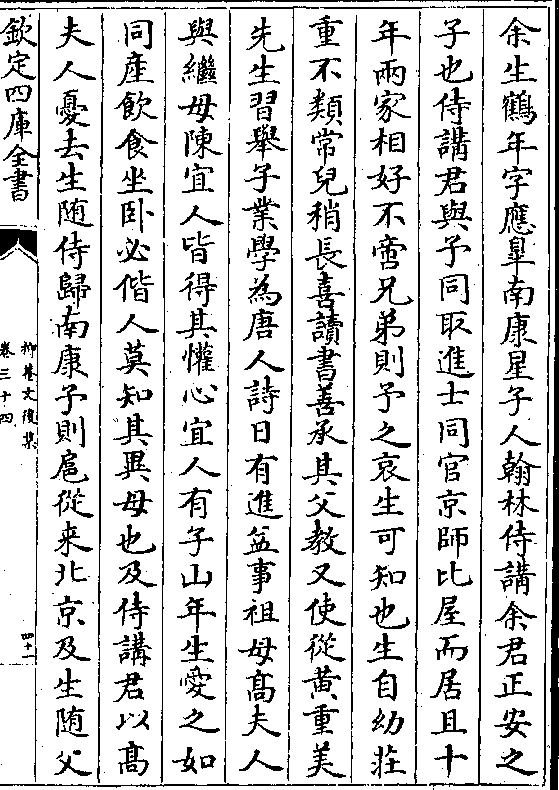 余生鶴年字應臯南康星子人翰林侍講余君正安之
子也侍講君與予同取進士同官京師比屋而居且十
年兩家相好不啻兄弟則予之哀生可知也生自幼莊
重不類常兒稍長喜讀書善承其父教又使從黄重美
先生習舉子業學為唐人詩日有進益事祖母髙夫人
與繼母陳宜人皆得其懽心宜人有子山年生愛之如
同産飲食坐卧必偕人莫知其異母也及侍講君以髙
夫人憂去生随侍歸南康予則扈從来北京及生随父
欽定四庫全書
抑菴文後集
卷三十四
四十一